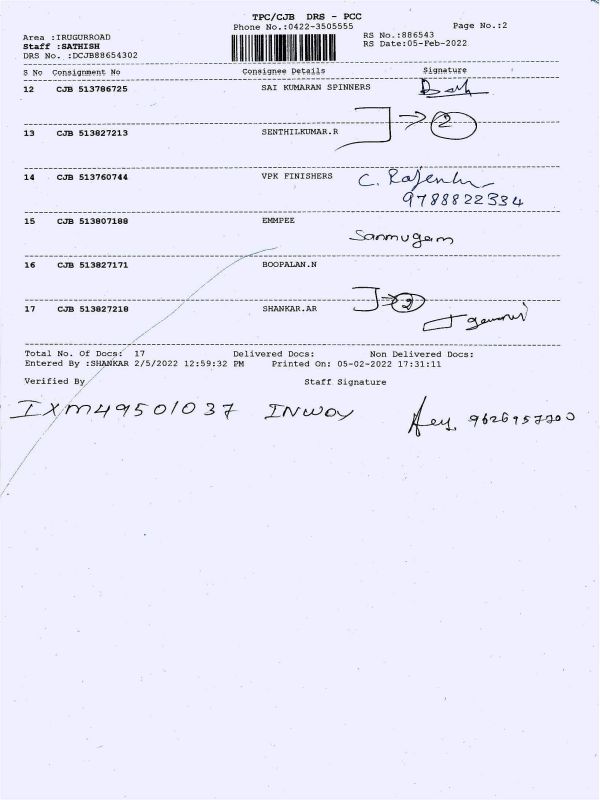 TPC/CJB DRS - PCC
Phone No.:0422-3505555 Page No.:2
Area :IRUGURROAD RS No.:886543
Staff :SATHISH RS Date:05-Feb-2022
DRS No. :DCJB88654302
S No Consignment No Consignee Details Signature
12 CJB 513786725 SAI KUMARAN SPINNERS
13 CJB 513827213 SENTHILKUMAR.R 2
14 CJB 513760744 VPK FINISHERS C. Rajendr
9788822334
15 CJB 513807188 EMMPEE
Sanmugam
16 CJB 513827171 BOOPALAN.N
17 CJB 513827218 SHANKAR.AR 2
Total No. Of Docs: 17 Delivered Docs: Non Delivered Docs:
Entered By :SHANKAR 2/5/2022 12:59:32 PM Printed On: 05-02-2022 17:31:11
Verified By Staff Signature
IXM49501037 INWOY